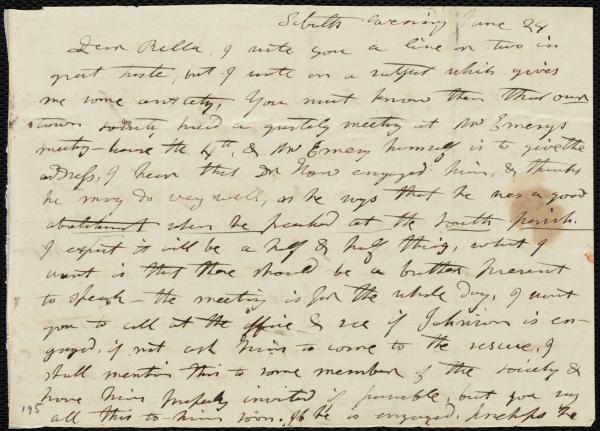 Sabbath evening June 24
Dear Bella, I write you a line or two in
great haste, but I write on a subject which gives
me some anxiety, You must know then that our
town society hold a quarterly meeting at Mr Emery's
meeting-house the 4th, & Mr Emery himself is to give the
address, I hear that Dr engaged him, & thinks
he may do very well, as he says that he was a good
abolitionist when he preached at the South parish.
I expect it will be a half & half thing, what I
want is that there should be a brother present
to speak - the meeting is for the whole day, I want
you to call at the office & see if Johnson is en-
gaged, if not ask him to come to the rescue, I
shall mention this to some member of the society &
have him properly invited if possible, but you say
195 all this to him soon. If he is engaged, perhaps he